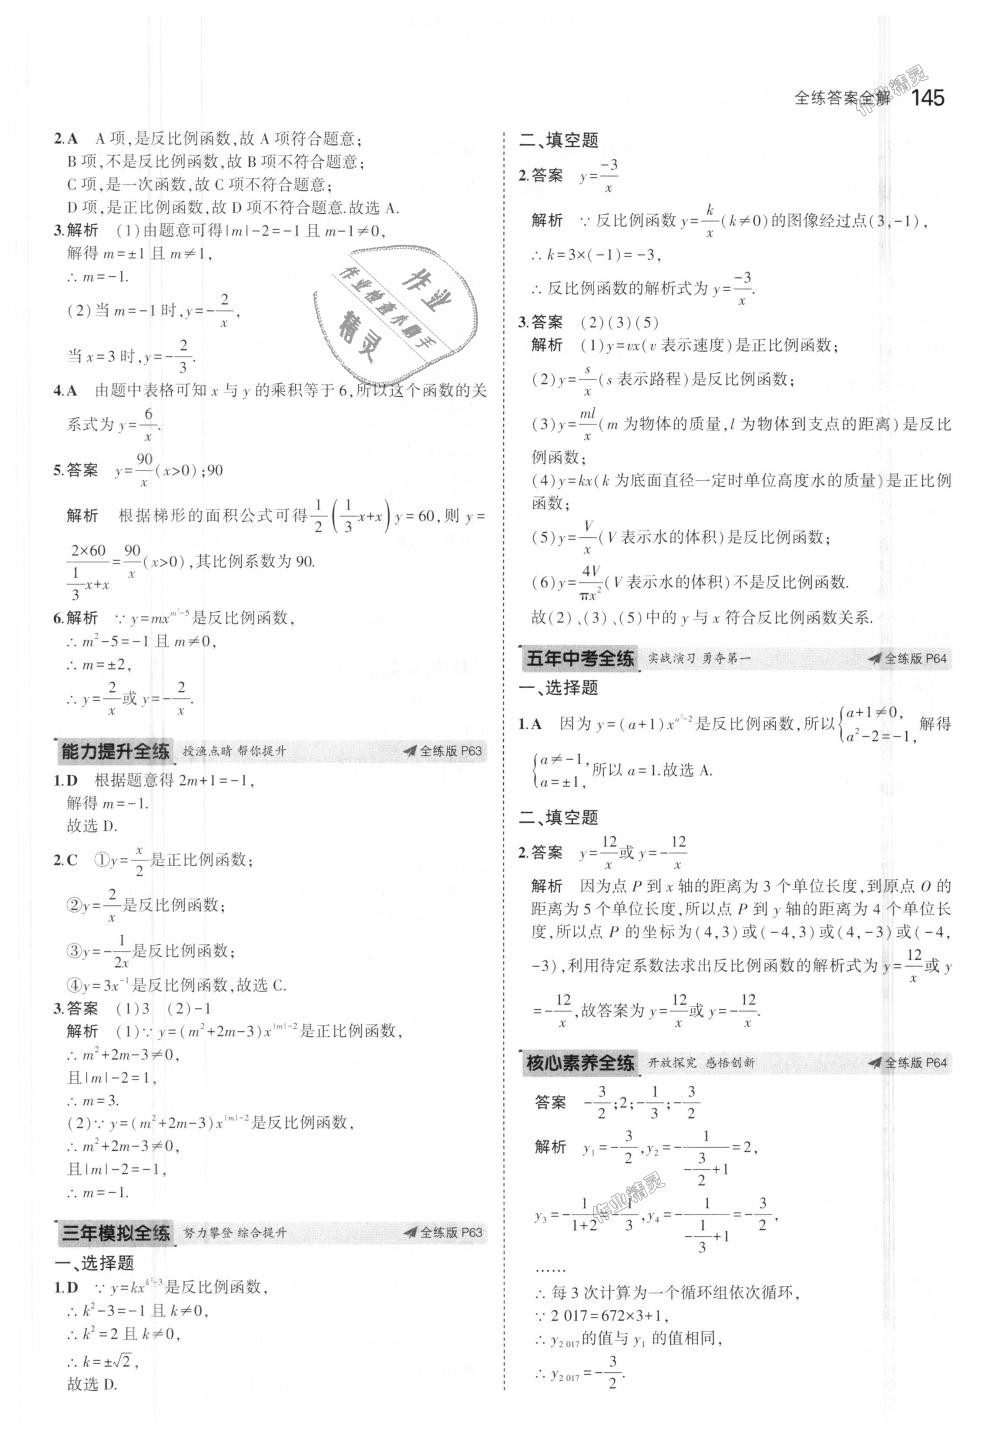 全练答案全解 145
2.A A 项,是反比例函数,故 A 项符合题意;
B 项,不是反比例函数,故 B 项不符合题意;
C 项,是一次函数,故 C 项不符合题意;
D 项,是正比例函数,故 D 项不符合题意.故选 A.
3.解析 (1)由题意可得|m|-2=-1 且 m-1≠0,
解得 m=±1 且 m≠1,
∴ m=-1.
(2)当 m=-1 时,y=-2/x,
当 x=3 时,y=-2/3.
4.A 由题中表格可知 x 与 y 的乘积等于 6,所以这个函数的关
系式为 y=6/x.
5.答案 y=90/x(x>0);90
解析 根据梯形的面积公式可得 1/2(1/3x+x)y=60,则 y=
2×60/(1/3x+x)=90/x(x>0),其比例系数为 90.
6.解析 ∵ y=mx^(m²-5)是反比例函数,
∴ m²-5=-1 且 m≠0,
∴ m=±2,
∴ y=2/x或 y=-2/x.
能力提升全练 授渔点睛 帮你提升 全练版 P63
1.D 根据题意得 2m+1=-1,
解得 m=-1.
故选 D.
2.C ①y=x/2是正比例函数;
②y=2/x是反比例函数;
③y=-1/2x是反比例函数;
④y=3x⁻¹是反比例函数,故选 C.
3.答案 (1)3 (2)-1
解析 (1)∵ y=(m²+2m-3)x^(|m|-2)是正比例函数,
∴ m²+2m-3≠0,
且|m|-2=1,
∴ m=3.
(2)∵ y=(m²+2m-3)x^(|m|-2)是反比例函数,
∴ m²+2m-3≠0,
且|m|-2=-1,
∴ m=-1.
三年模拟全练 努力攀登 综合提升 全练版 P63
一、选择题
1.D ∵ y=kx^(k²-3)是反比例函数,
∴ k²-3=-1 且 k≠0,
∴ k²=2 且 k≠0,
∴ k=±√2,
故选 D.
二、填空题
2.答案 y=-3/x
解析 ∵ 反比例函数 y=k/x(k≠0)的图像经过点(3,-1),
∴ k=3×(-1)=-3,
∴ 反比例函数的解析式为 y=-3/x.
3.答案 (2)(3)(5)
解析 (1)y=vx(v 表示速度)是正比例函数;
(2)y=s/x(s 表示路程)是反比例函数;
(3)y=ml/x(m 为物体的质量,l 为物体到支点的距离)是反比
例函数;
(4)y=kx(k 为底面直径一定时单位高度水的质量)是正比例
函数;
(5)y=V/x(V 表示水的体积)是反比例函数;
(6)y=4V/πx²(V 表示水的体积)不是反比例函数.
故(2)、(3)、(5)中的 y 与 x 符合反比例函数关系.
五年中考全练 实战演习 勇夺第一 全练版 P64
一、选择题
1.A 因为 y=(a+1)x^(a²-2)是反比例函数,所以{a+1≠0, a²-2=-1, 解得
{a≠-1, a=±1, 所以 a=1.故选 A.
二、填空题
2.答案 y=12/x或 y=-12/x
解析 因为点 P 到 x 轴的距离为 3 个单位长度,到原点 O 的
距离为 5 个单位长度,所以点 P 到 y 轴的距离为 4 个单位长
度,所以点 P 的坐标为(4,3)或(-4,3)或(4,-3)或(-4,
-3),利用待定系数法求出反比例函数的解析式为 y=12/x或 y
=-12/x,故答案为 y=12/x或 y=-12/x.
核心素养全练 开放探究 感悟创新 全练版 P64
答案 -3/2;2;-1/3;-3/2
解析 y₁=-3/2,y₂=-1/(-3/2+1)=2,
y₃=-1/(1+2)=-1/3,y₄=-1/(-1/3+1)=-3/2,
……
∴ 每 3 次计算为一个循环组依次循环,
∵ 2 017=672×3+1,
∴ y₂ ₀₁₇的值与 y₁ 的值相同,
∴ y₂ ₀₁₇=-3/2.
作业
作业检查小助手
精灵
作业精灵
作业精灵